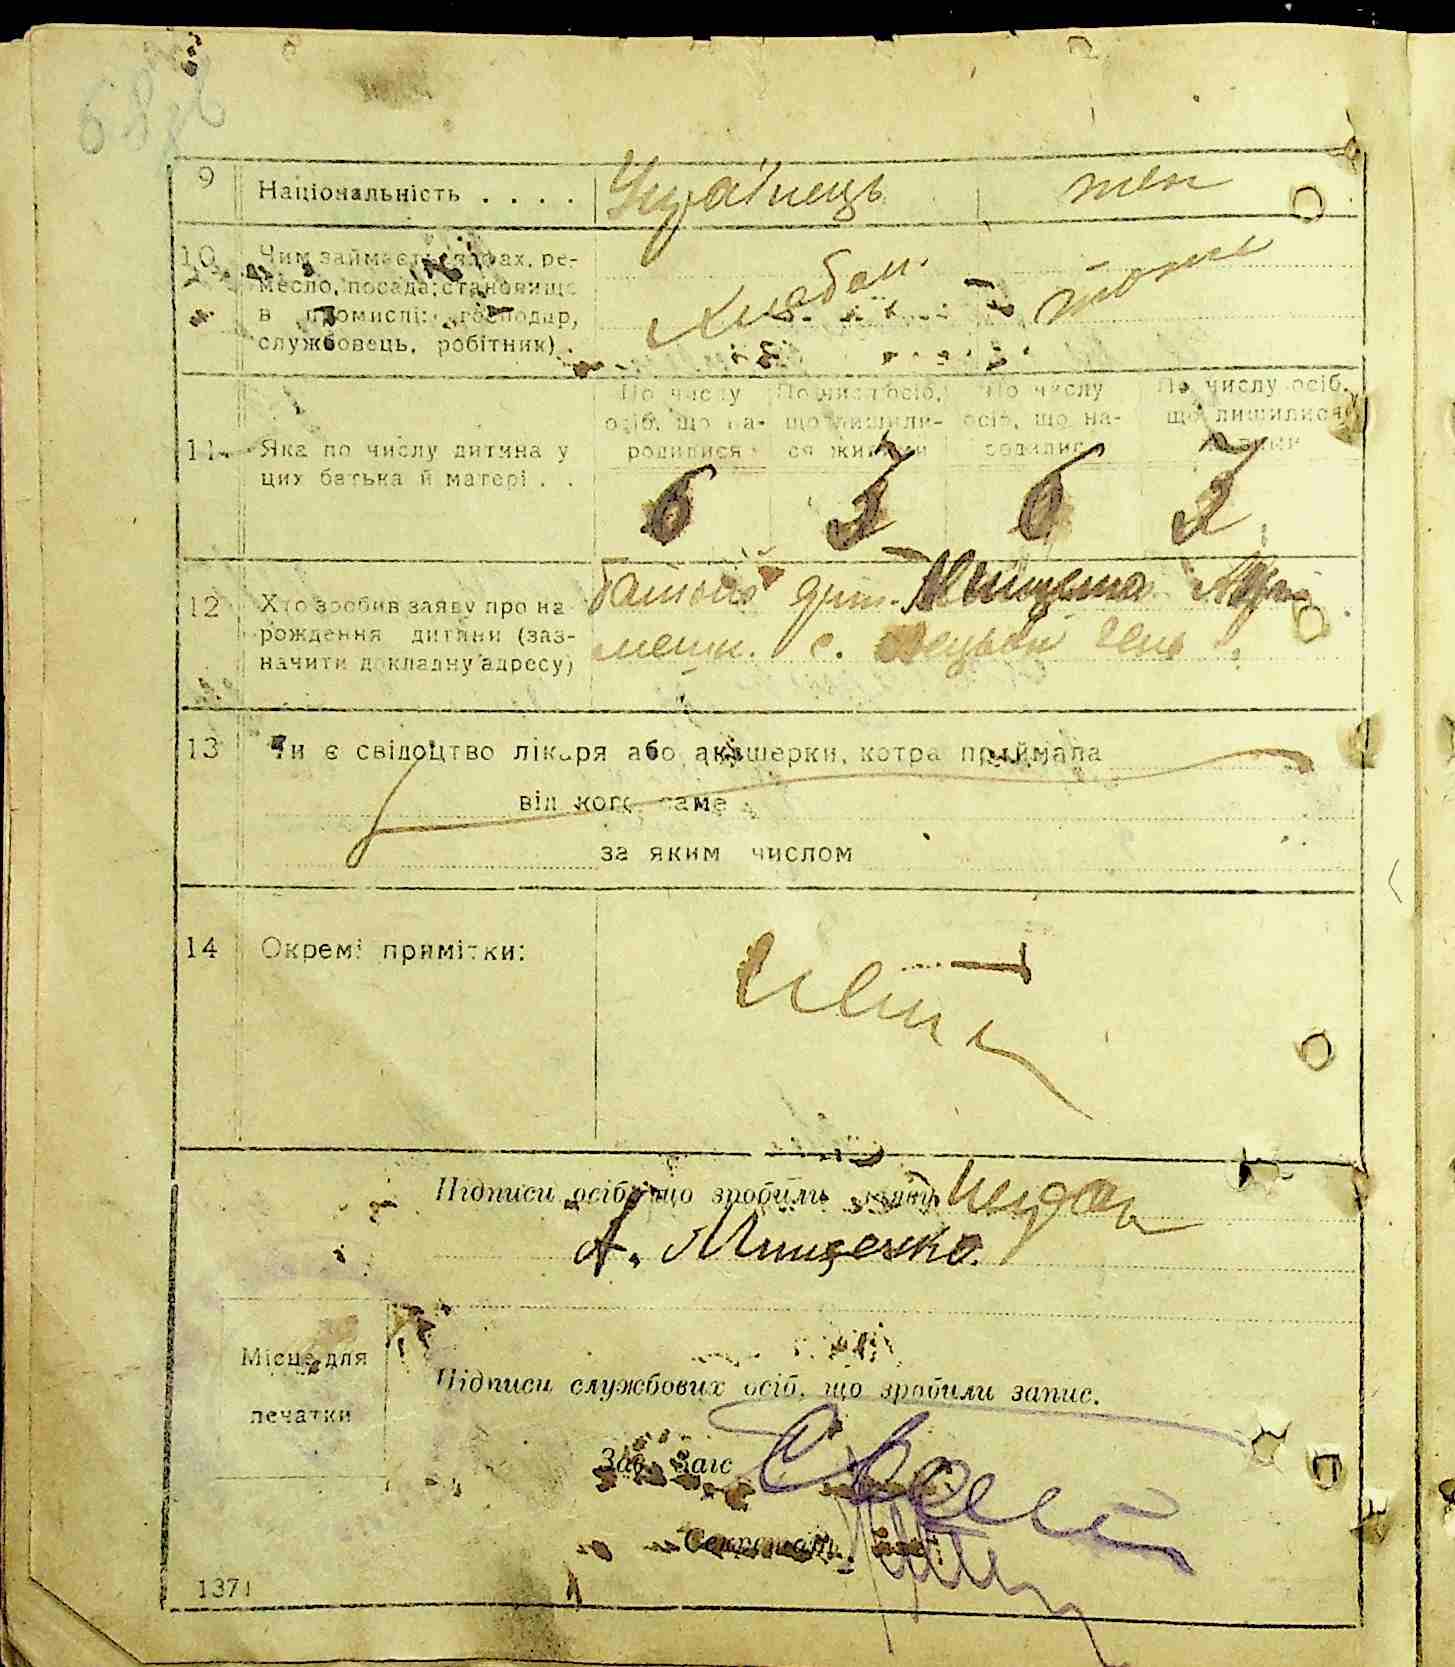 9 Національність . . . . Українець теж
10 Чим займаеться (фах, ре-
месло, посада; становище
в промислі: господар,
службовець, робітник) .
Хлебоп. тоже
По числу осіб, що на- родилися По числ осіб, що лишили- ся живими По числу осіб, що на- родилися По числу осіб, що лишилися живими
11 Яка по числу дитина у
цих батька й матері . .
6 3 6 3
12 Хто зробив заяву про на-
рождення дитини (заз-
начити докладну адресу)
батько дит. Мищенко
мешк. с.
13 Чи є свідоцтво лікаря або акушерки, котра приймала
від кого саме
за яким числом
14 Окремі примітки:
нет
Підписи осіб, що зробили заяву
А. Мищенко.
Місце для
печатки
Підписи службових осіб, що зробили запис.
Зав. Загс
Секретарь
1371